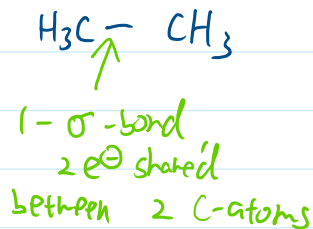 H₃C — CH₃
1 - σ - bond
2 e⊖ shared
between 2 C-atoms